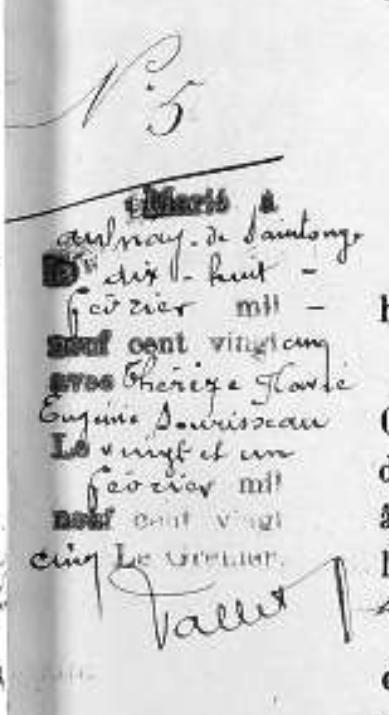 N° 5
Marié à
aulnay-de Saintonge
le dix-huit -
février mil -
neuf cent vingt cinq
avec Thérèze Marie
Eugénie Sourisseau
Le vingt et un
février mil
neuf cent vingt
cinq Le Greffier,
Vallet